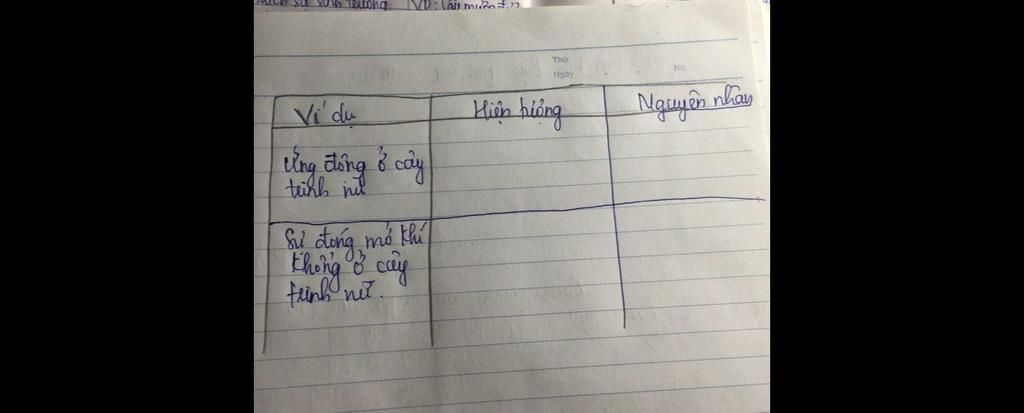 sự sinh trưởng VD: Cây
Thứ
Ngày
No.
Ví dụ
Hiện tượng
Nguyên nhân
Ứng động ở cây
trinh nữ
Sự đóng mở khí
khổng ở cây
trinh nữ.